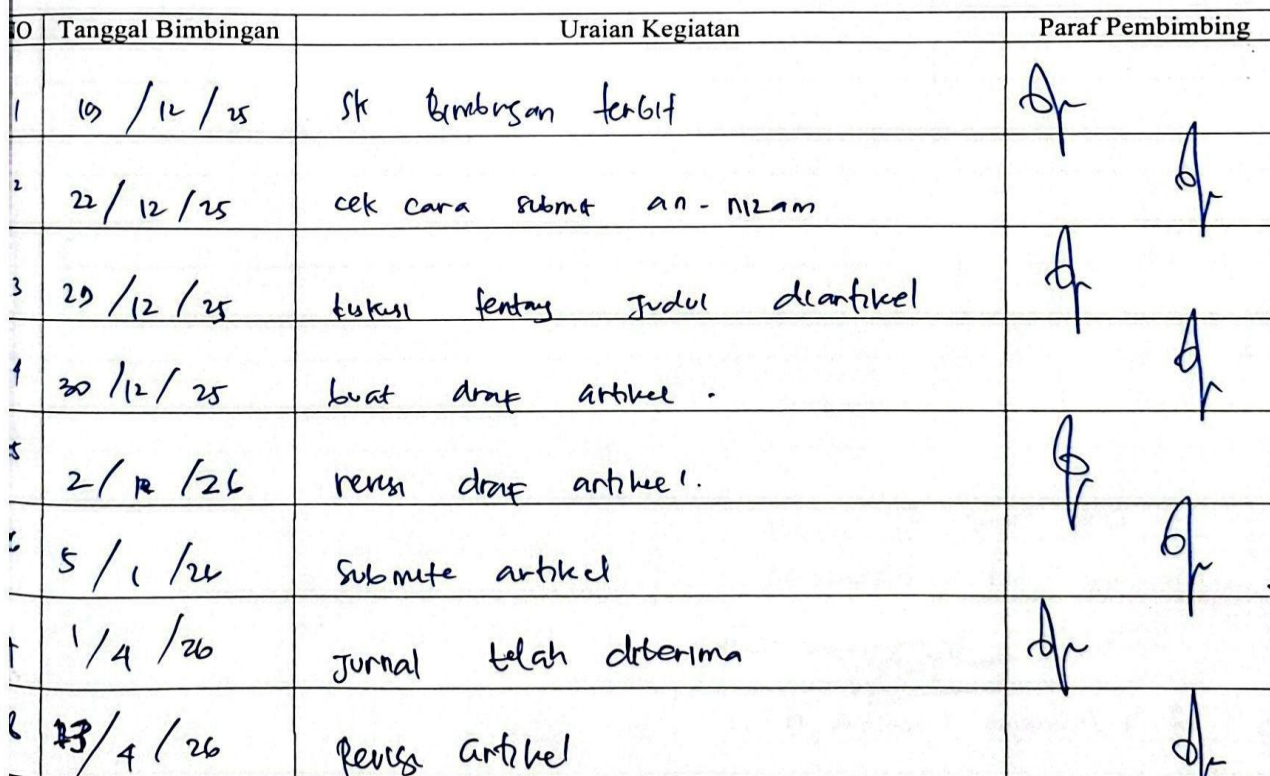 NO Tanggal Bimbingan Uraian Kegiatan Paraf Pembimbing
1 19 / 12 / 25 SK Bimbingan terbit
2 22 / 12 / 25 cek cara submit an-nizam
3 29 / 12 / 25 tentang Judul artikel
4 30 / 12 / 25 buat draf artikel .
5 2 / / 26 revisi draf artikel .
6 5 / 1 / 26 Submite artikel
7 1 / 4 / 26 Jurnal telah diterima
8 / 4 / 26 Revisi artikel